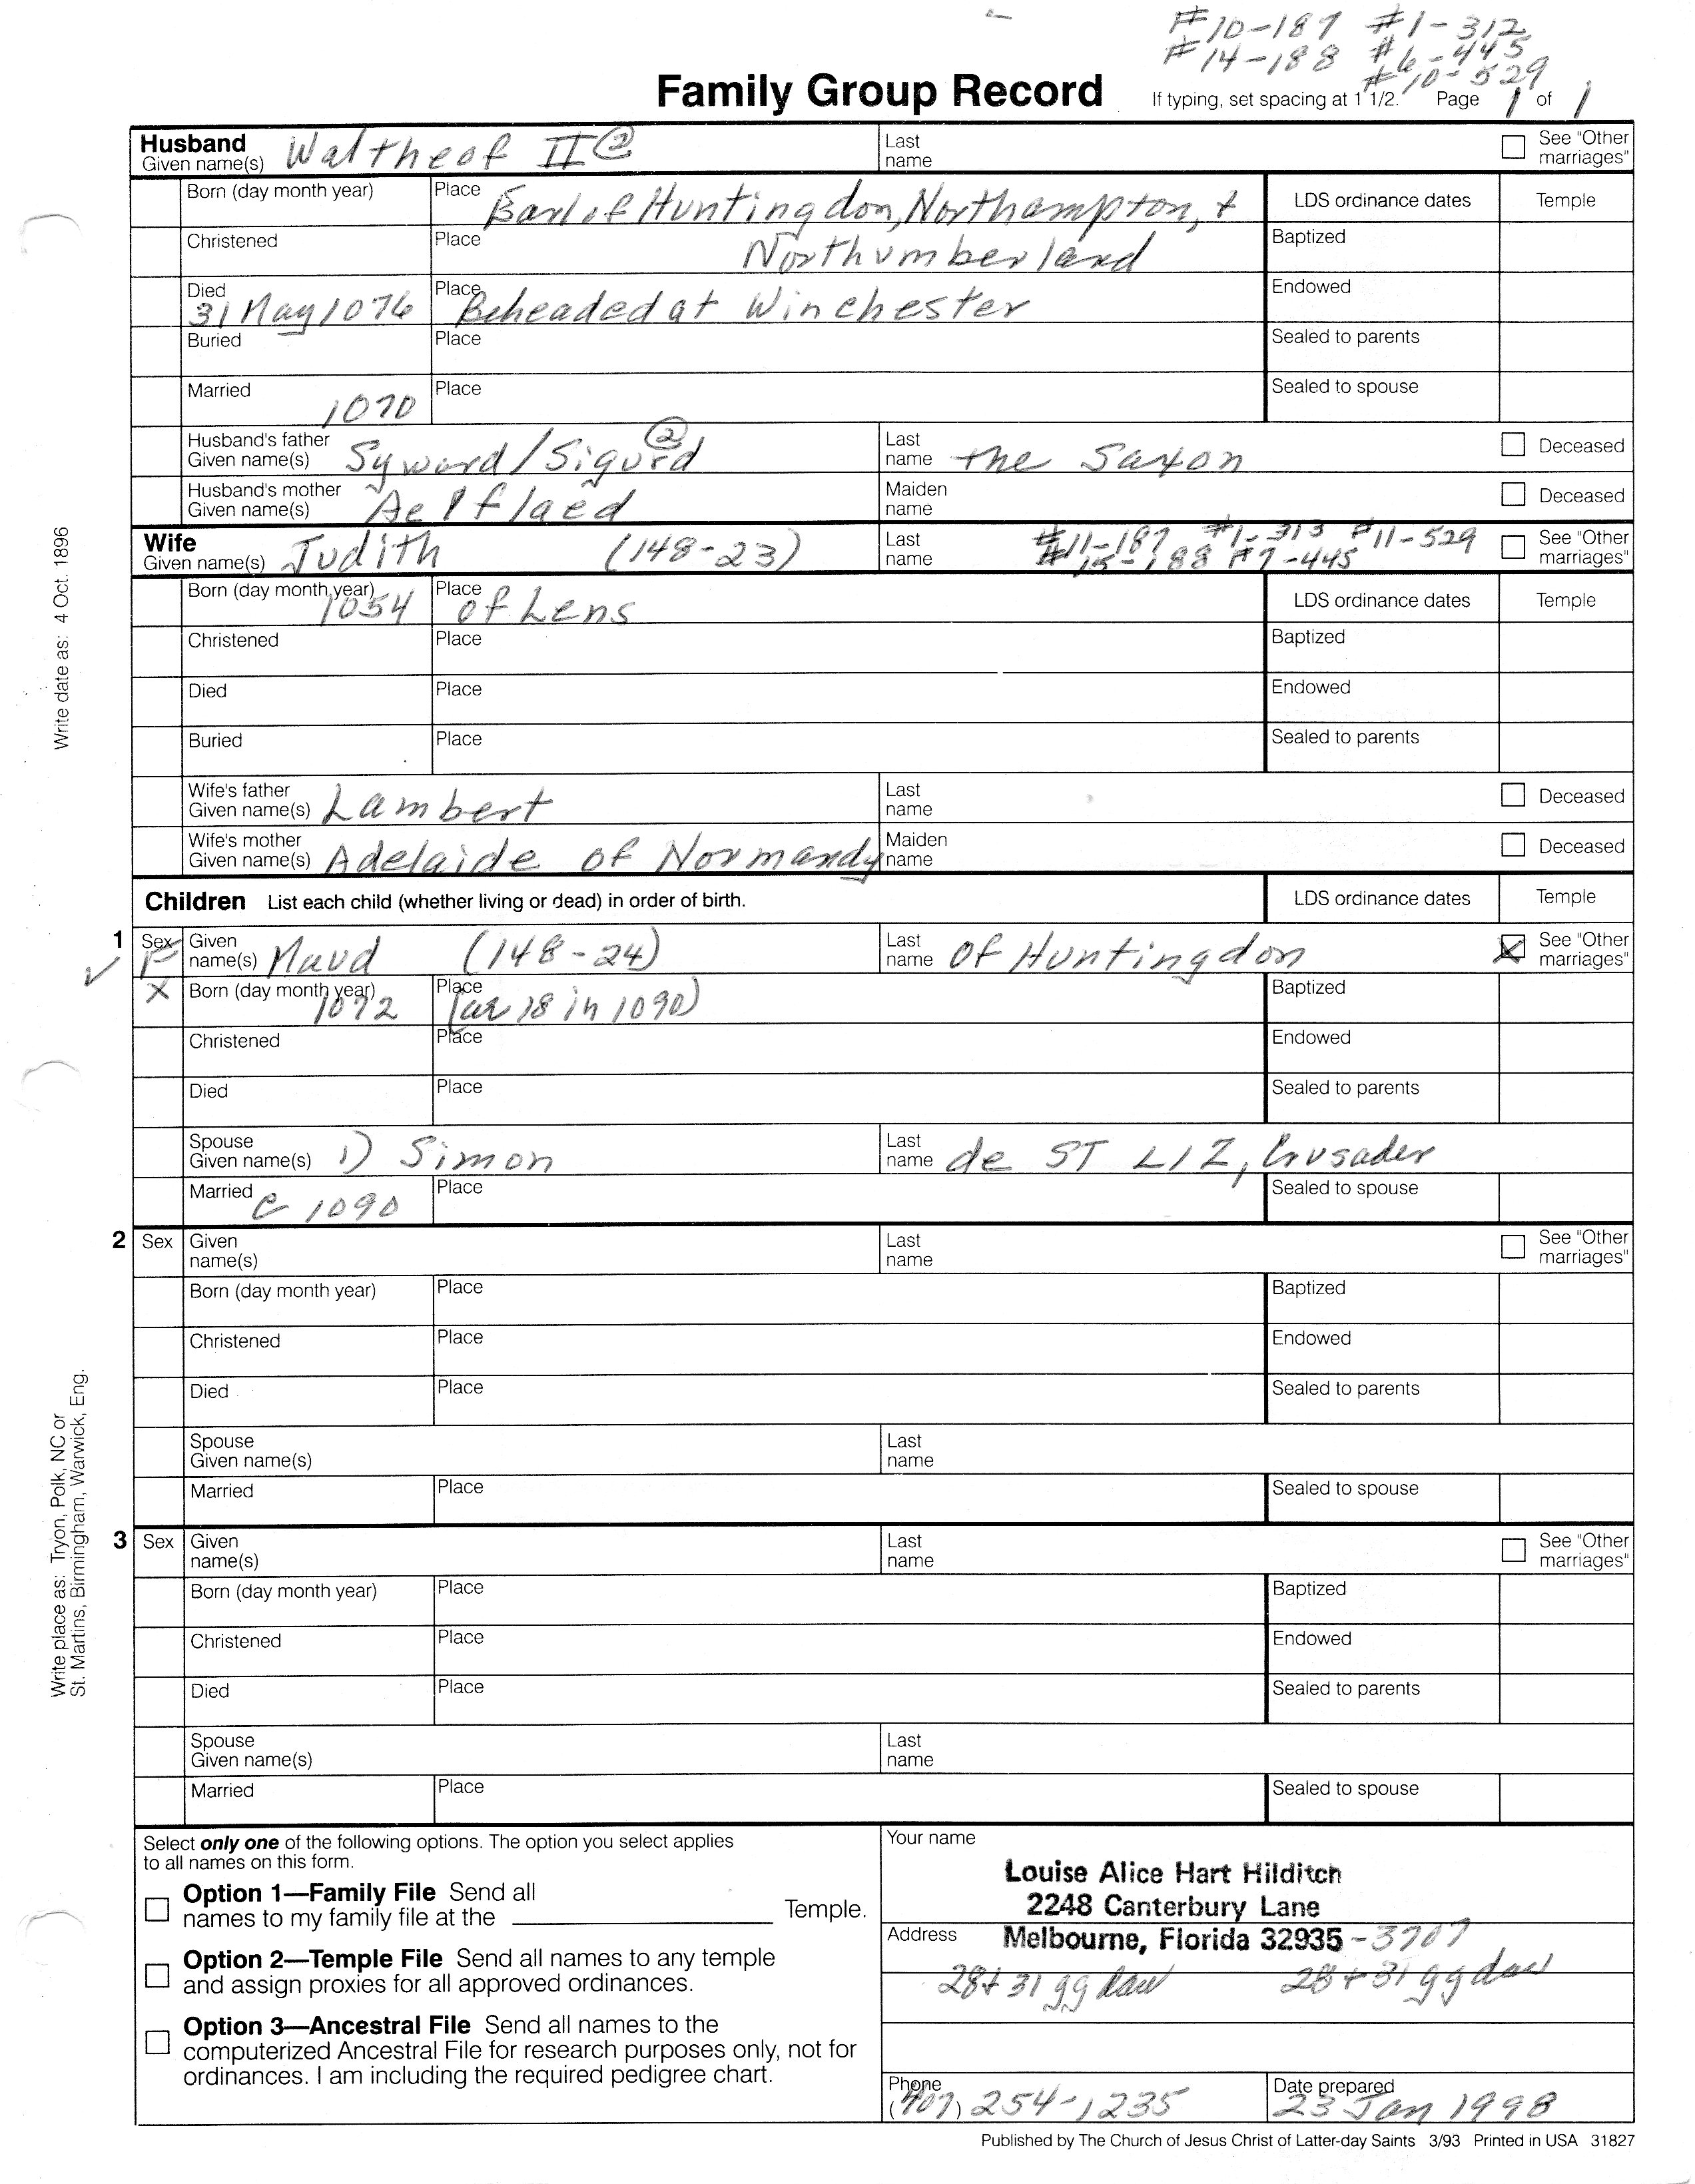 #10-187 #1-312
#14-188 #6-445
#10-529
Family Group Record
If typing, set spacing at 1 1/2. Page 1 of 1
Husband
Given name(s) Waltheof II @
Last name
See "Other marriages"
Born (day month year)
Place Earl of Huntingdon, Northampton, +
LDS ordinance dates
Temple
Christened
Place Northumberland
Baptized
Died 31 May 1076
Place Beheaded at Winchester
Endowed
Buried
Place
Sealed to parents
Married 1070
Place
Sealed to spouse
Husband's father
Given name(s) Syward/Sigurd @
Last name the Saxon
Deceased
Husband's mother
Given name(s) Aelflaed
Maiden name
Deceased
Wife
Given name(s) Judith (148-23)
Last name #11-187 #1-313 #11-529
#15-188 #7-445
See "Other marriages"
Born (day month year) 1054
Place of Lens
LDS ordinance dates
Temple
Christened
Place
Baptized
Died
Place
Endowed
Buried
Place
Sealed to parents
Wife's father
Given name(s) Lambert
Last name
Deceased
Wife's mother
Given name(s) Adelaide of Normandy
Maiden name
Deceased
Children List each child (whether living or dead) in order of birth.
LDS ordinance dates
Temple
1 Sex F
Given name(s) Maud (148-24)
Last name of Huntingdon
X See "Other marriages"
X Born (day month year) 1072
Place (ae 18 in 1090)
Baptized
Christened
Place
Endowed
Died
Place
Sealed to parents
Spouse
Given name(s) 1) Simon
Last name de ST LIZ, Crusader
Married c 1090
Place
Sealed to spouse
2 Sex
Given name(s)
Last name
See "Other marriages"
Born (day month year)
Place
Baptized
Christened
Place
Endowed
Died
Place
Sealed to parents
Spouse
Given name(s)
Last name
Married
Place
Sealed to spouse
3 Sex
Given name(s)
Last name
See "Other marriages"
Born (day month year)
Place
Baptized
Christened
Place
Endowed
Died
Place
Sealed to parents
Spouse
Given name(s)
Last name
Married
Place
Sealed to spouse
Write date as: 4 Oct. 1896
Write place as: Tryon, Polk, NC or
St. Martins, Birmingham, Warwick, Eng.
Select only one of the following options. The option you select applies
to all names on this form.
Option 1—Family File Send all
names to my family file at the Temple.
Option 2—Temple File Send all names to any temple
and assign proxies for all approved ordinances.
Option 3—Ancestral File Send all names to the
computerized Ancestral File for research purposes only, not for
ordinances. I am including the required pedigree chart.
Your name
Louise Alice Hart Hilditch
2248 Canterbury Lane
Address Melbourne, Florida 32935-3707
28+31 gg dau 28+31 gg dau
Phone
(407) 254-1235
Date prepared
23 Jan 1998
Published by The Church of Jesus Christ of Latter-day Saints 3/93 Printed in USA 31827